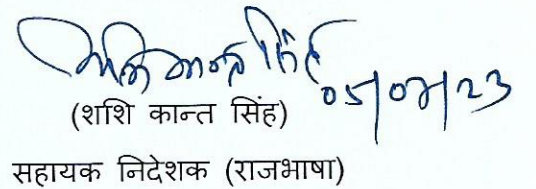 शशि कान्त सिंह 05/07/23
(शशि कान्त सिंह)
सहायक निदेशक (राजभाषा)